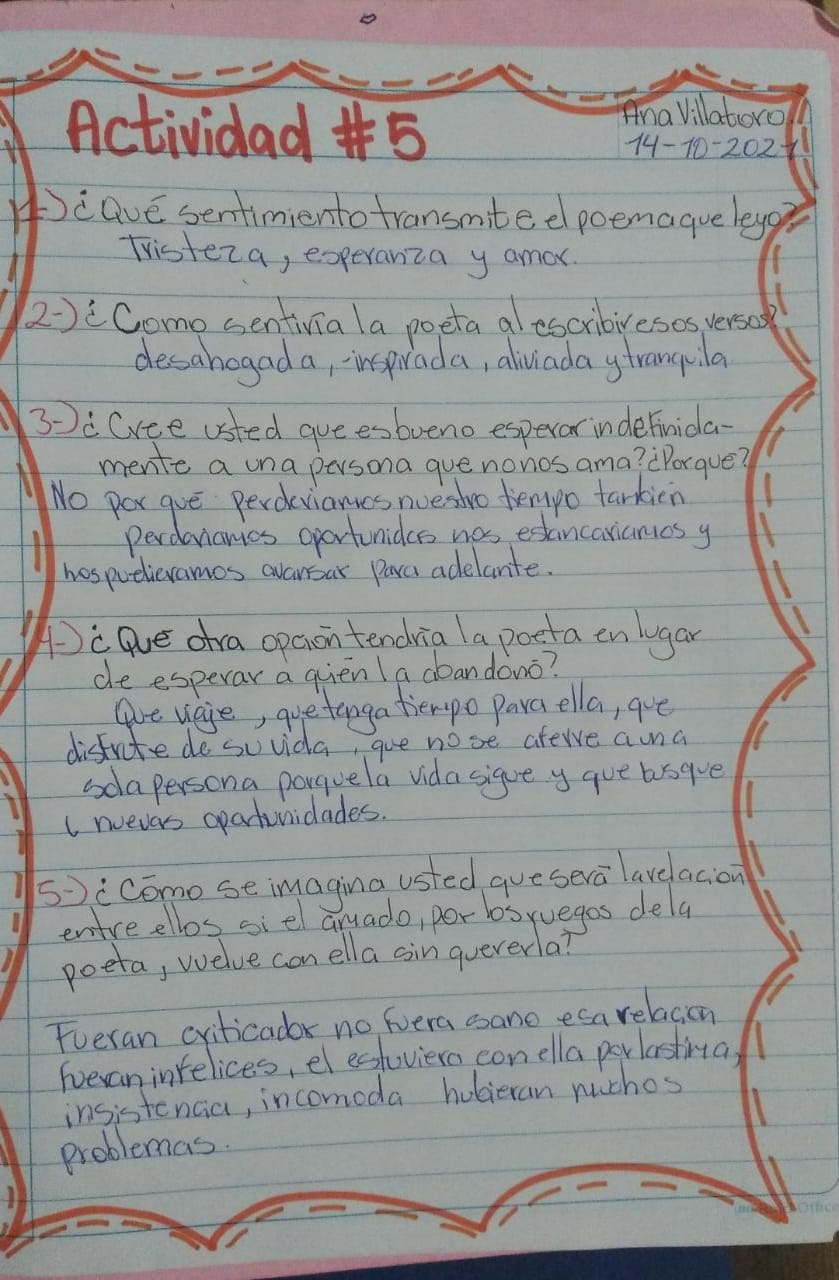 Actividad #5
Ana Villatoro
14-10-2021
1-) ¿Qué sentimiento transmite el poema que leyo?
Tristeza, esperanza y amor.
2-) ¿Como sentiría la poeta al escribir esos versos?
desahogada, inspirada, aliviada y tranquila
3-) ¿Cree usted que es bueno esperar indefinida-
mente a una persona que no nos ama? ¿Por que?
No por qué perderiamos nuestro tiempo tambien
perderiamos oportunides nos estancariamos y
nos pudieramos avansar para adelante.
4-) ¿Qué otra opción tendría la poeta en lugar
de esperar a quién la abandonó?
Que viaje, que tenga tiempo para ella, que
disfrute de su vida, que no se aferre a una
sola persona porque la vida sigue y que busque
nuevas oportunidades.
5-) ¿Cómo se imagina usted que será la relación
entre ellos si el amado, por los ruegos de la
poeta, vuelve con ella sin quererla?
Fueran criticador no fuera sano esa relacion
fueran infelices, el estuviera con ella por lastima,
insistencia, incomoda hubieran muchos
problemas.